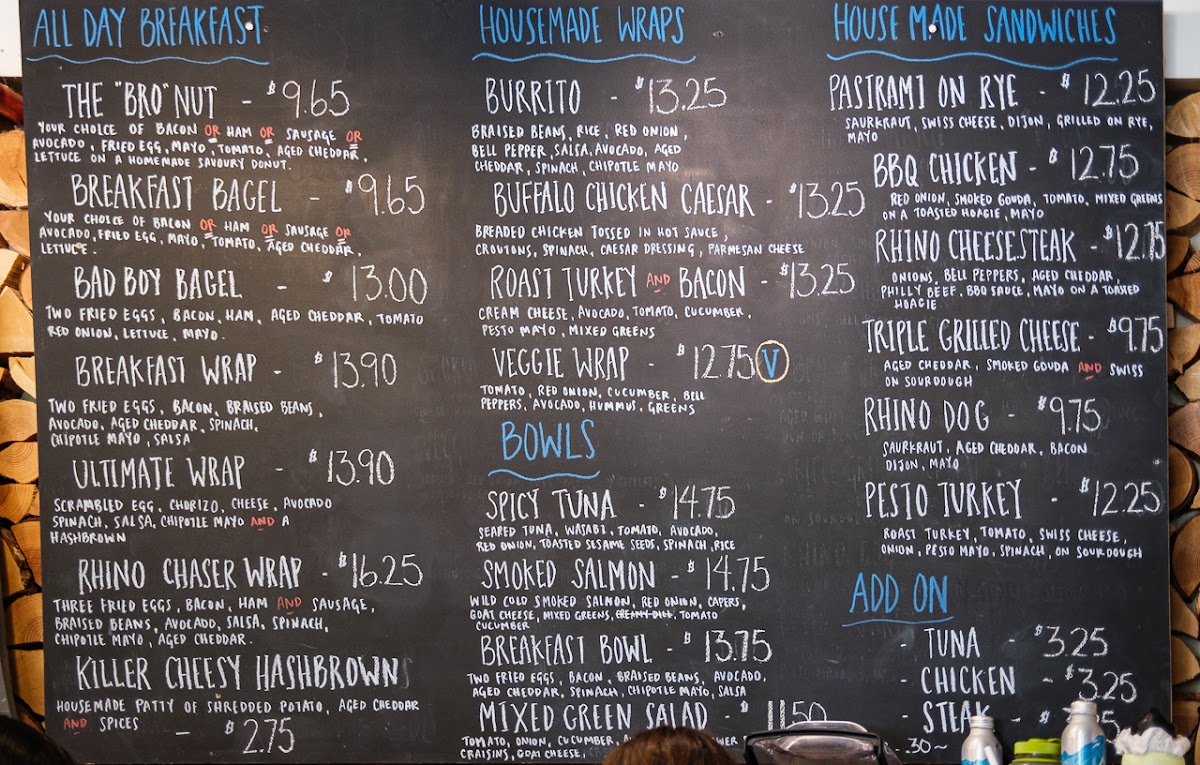 ALL DAY BREAKFAST
THE "BRO"NUT - $9.65
YOUR CHOICE OF BACON OR HAM OR SAUSAGE OR
AVOCADO, FRIED EGG, MAYO, TOMATO, AGED CHEDDAR,
LETTUCE ON A HOMEMADE SAVOURY DONUT.
BREAKFAST BAGEL - $9.65
YOUR CHOICE OF BACON OR HAM OR SAUSAGE OR
AVOCADO, FRIED EGG, MAYO, TOMATO, AGED CHEDDAR,
LETTUCE.
BAD BOY BAGEL - $13.00
TWO FRIED EGGS, BACON, HAM, AGED CHEDDAR, TOMATO
RED ONION, LETTUCE, MAYO.
BREAKFAST WRAP - $13.90
TWO FRIED EGGS, BACON, BRAISED BEANS,
AVOCADO, AGED CHEDDAR, SPINACH,
CHIPOTLE MAYO, SALSA
ULTIMATE WRAP - $13.90
SCRAMBLED EGG, CHORIZO, CHEESE, AVOCADO
SPINACH, SALSA, CHIPOTLE MAYO AND A
HASHBROWN
RHINO CHASER WRAP - $16.25
THREE FRIED EGGS, BACON, HAM AND SAUSAGE,
BRAISED BEANS, AVOCADO, SALSA, SPINACH,
CHIPOTLE MAYO, AGED CHEDDAR.
KILLER CHEESY HASHBROWNS
HOUSEMADE PATTY OF SHREDDED POTATO, AGED CHEDDAR
AND SPICES - $2.75
HOUSEMADE WRAPS
BURRITO - $13.25
BRAISED BEANS, RICE, RED ONION,
BELL PEPPER, SALSA, AVOCADO, AGED
CHEDDAR, SPINACH, CHIPOTLE MAYO
BUFFALO CHICKEN CAESAR - $13.25
BREADED CHICKEN TOSSED IN HOT SAUCE,
CROUTONS, SPINACH, CAESAR DRESSING, PARMESAN CHEESE
ROAST TURKEY AND BACON - $13.25
CREAM CHEESE, AVOCADO, TOMATO, CUCUMBER,
PESTO MAYO, MIXED GREENS
VEGGIE WRAP - $12.75 V
TOMATO, RED ONION, CUCUMBER, BELL
PEPPERS, AVOCADO, HUMMUS, GREENS
BOWLS
SPICY TUNA - $14.75
SEARED TUNA, WASABI, TOMATO, AVOCADO,
RED ONION, TOASTED SESAME SEEDS, SPINACH, RICE
SMOKED SALMON - $14.75
WILD COLD SMOKED SALMON, RED ONION, CAPERS,
GOAT CHEESE, MIXED GREENS, CREAMY DILL, TOMATO
CUCUMBER
BREAKFAST BOWL - $13.75
TWO FRIED EGGS, BACON, BRAISED BEANS, AVOCADO,
AGED CHEDDAR, SPINACH, CHIPOTLE MAYO, SALSA
MIXED GREEN SALAD - $11.50
TOMATO, ONION, CUCUMBER,
CRAISINS, GOAT CHEESE,
HOUSE MADE SANDWICHES
PASTRAMI ON RYE - $12.25
SAURKRAUT, SWISS CHEESE, DIJON, GRILLED ON RYE,
MAYO
BBQ CHICKEN - $12.75
RED ONION, SMOKED GOUDA, TOMATO, MIXED GREENS
ON A TOASTED HOAGIE, MAYO
RHINO CHEESESTEAK - $12.75
ONIONS, BELL PEPPERS, AGED CHEDDAR,
PHILLY BEEF, BBQ SAUCE, MAYO ON A TOASTED
HOAGIE
TRIPLE GRILLED CHEESE - $9.75
AGED CHEDDAR, SMOKED GOUDA AND SWISS
ON SOURDOUGH
RHINO DOG - $9.75
SAURKRAUT, AGED CHEDDAR, BACON
DIJON, MAYO
PESTO TURKEY - $12.25
ROAST TURKEY, TOMATO, SWISS CHEESE,
ONION, PESTO MAYO, SPINACH, ON SOURDOUGH
ADD ON
- TUNA - $3.25
- CHICKEN - $3.25
- STEAK - $